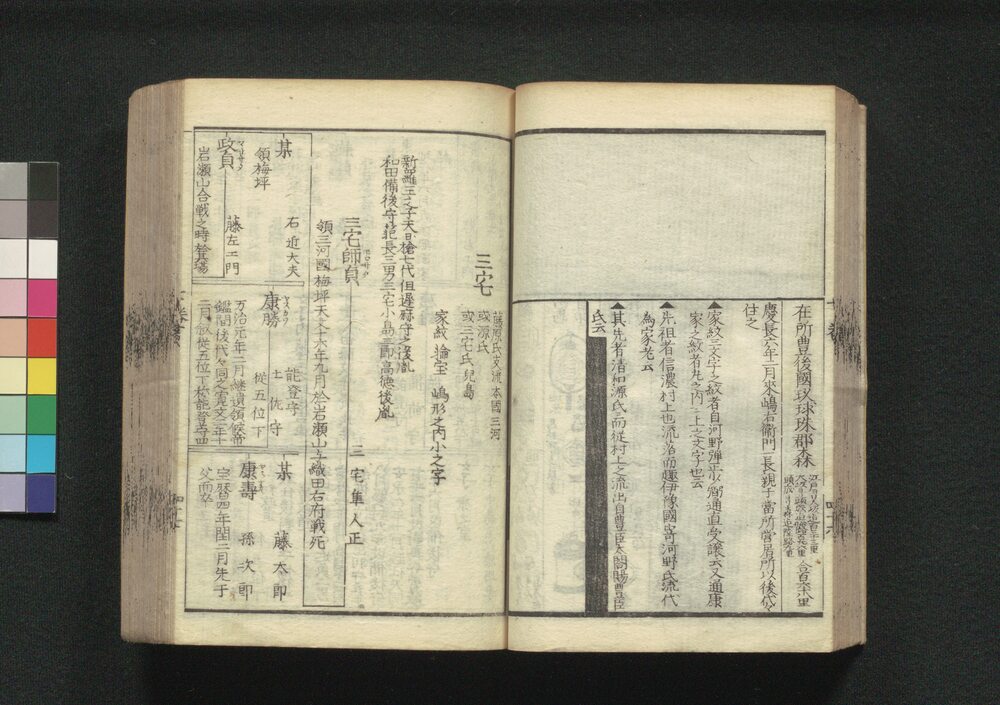 在所豊後國玖球珠郡森
慶長六年二月來嶋右衞門一長親子當所營居所以後代々
住之
▲家紋三文字之紋者自河野彈正少弼通直受讓云又通康
家之紋者丸之内ニ上之文字也云
▲先祖者信濃村上也流浴而趣伊豫國寄河野氏流代
為家老云
▲其先者清和源氏而從村上之流出自豊臣太閤賜豊臣
氏云
三宅
藤原氏支流 本國三河
或源氏
或三宅氏兒島
家紋 輪宝 嶋形之内小之字
新羅王之子天日槍七代但遅麻守之後胤
和田備後守範長三男三宅小島三郎高德後胤
三宅師貞
三宅隼人正
領三河國梅坪天文十六年九月於岩瀬山与織田右府戰死
某
右近大夫
領梅坪
政貞
藤左エ門
岩瀬山合戰之時
康勝
能登守
土佐守
從五位下
万治元年二月継遺領候帝
鑑間後代々同之寛文三年十
二月叙從五位下称能登守四
某
藤太郎
康壽
孫次郎
宝暦四年閏二月先于
父而卒